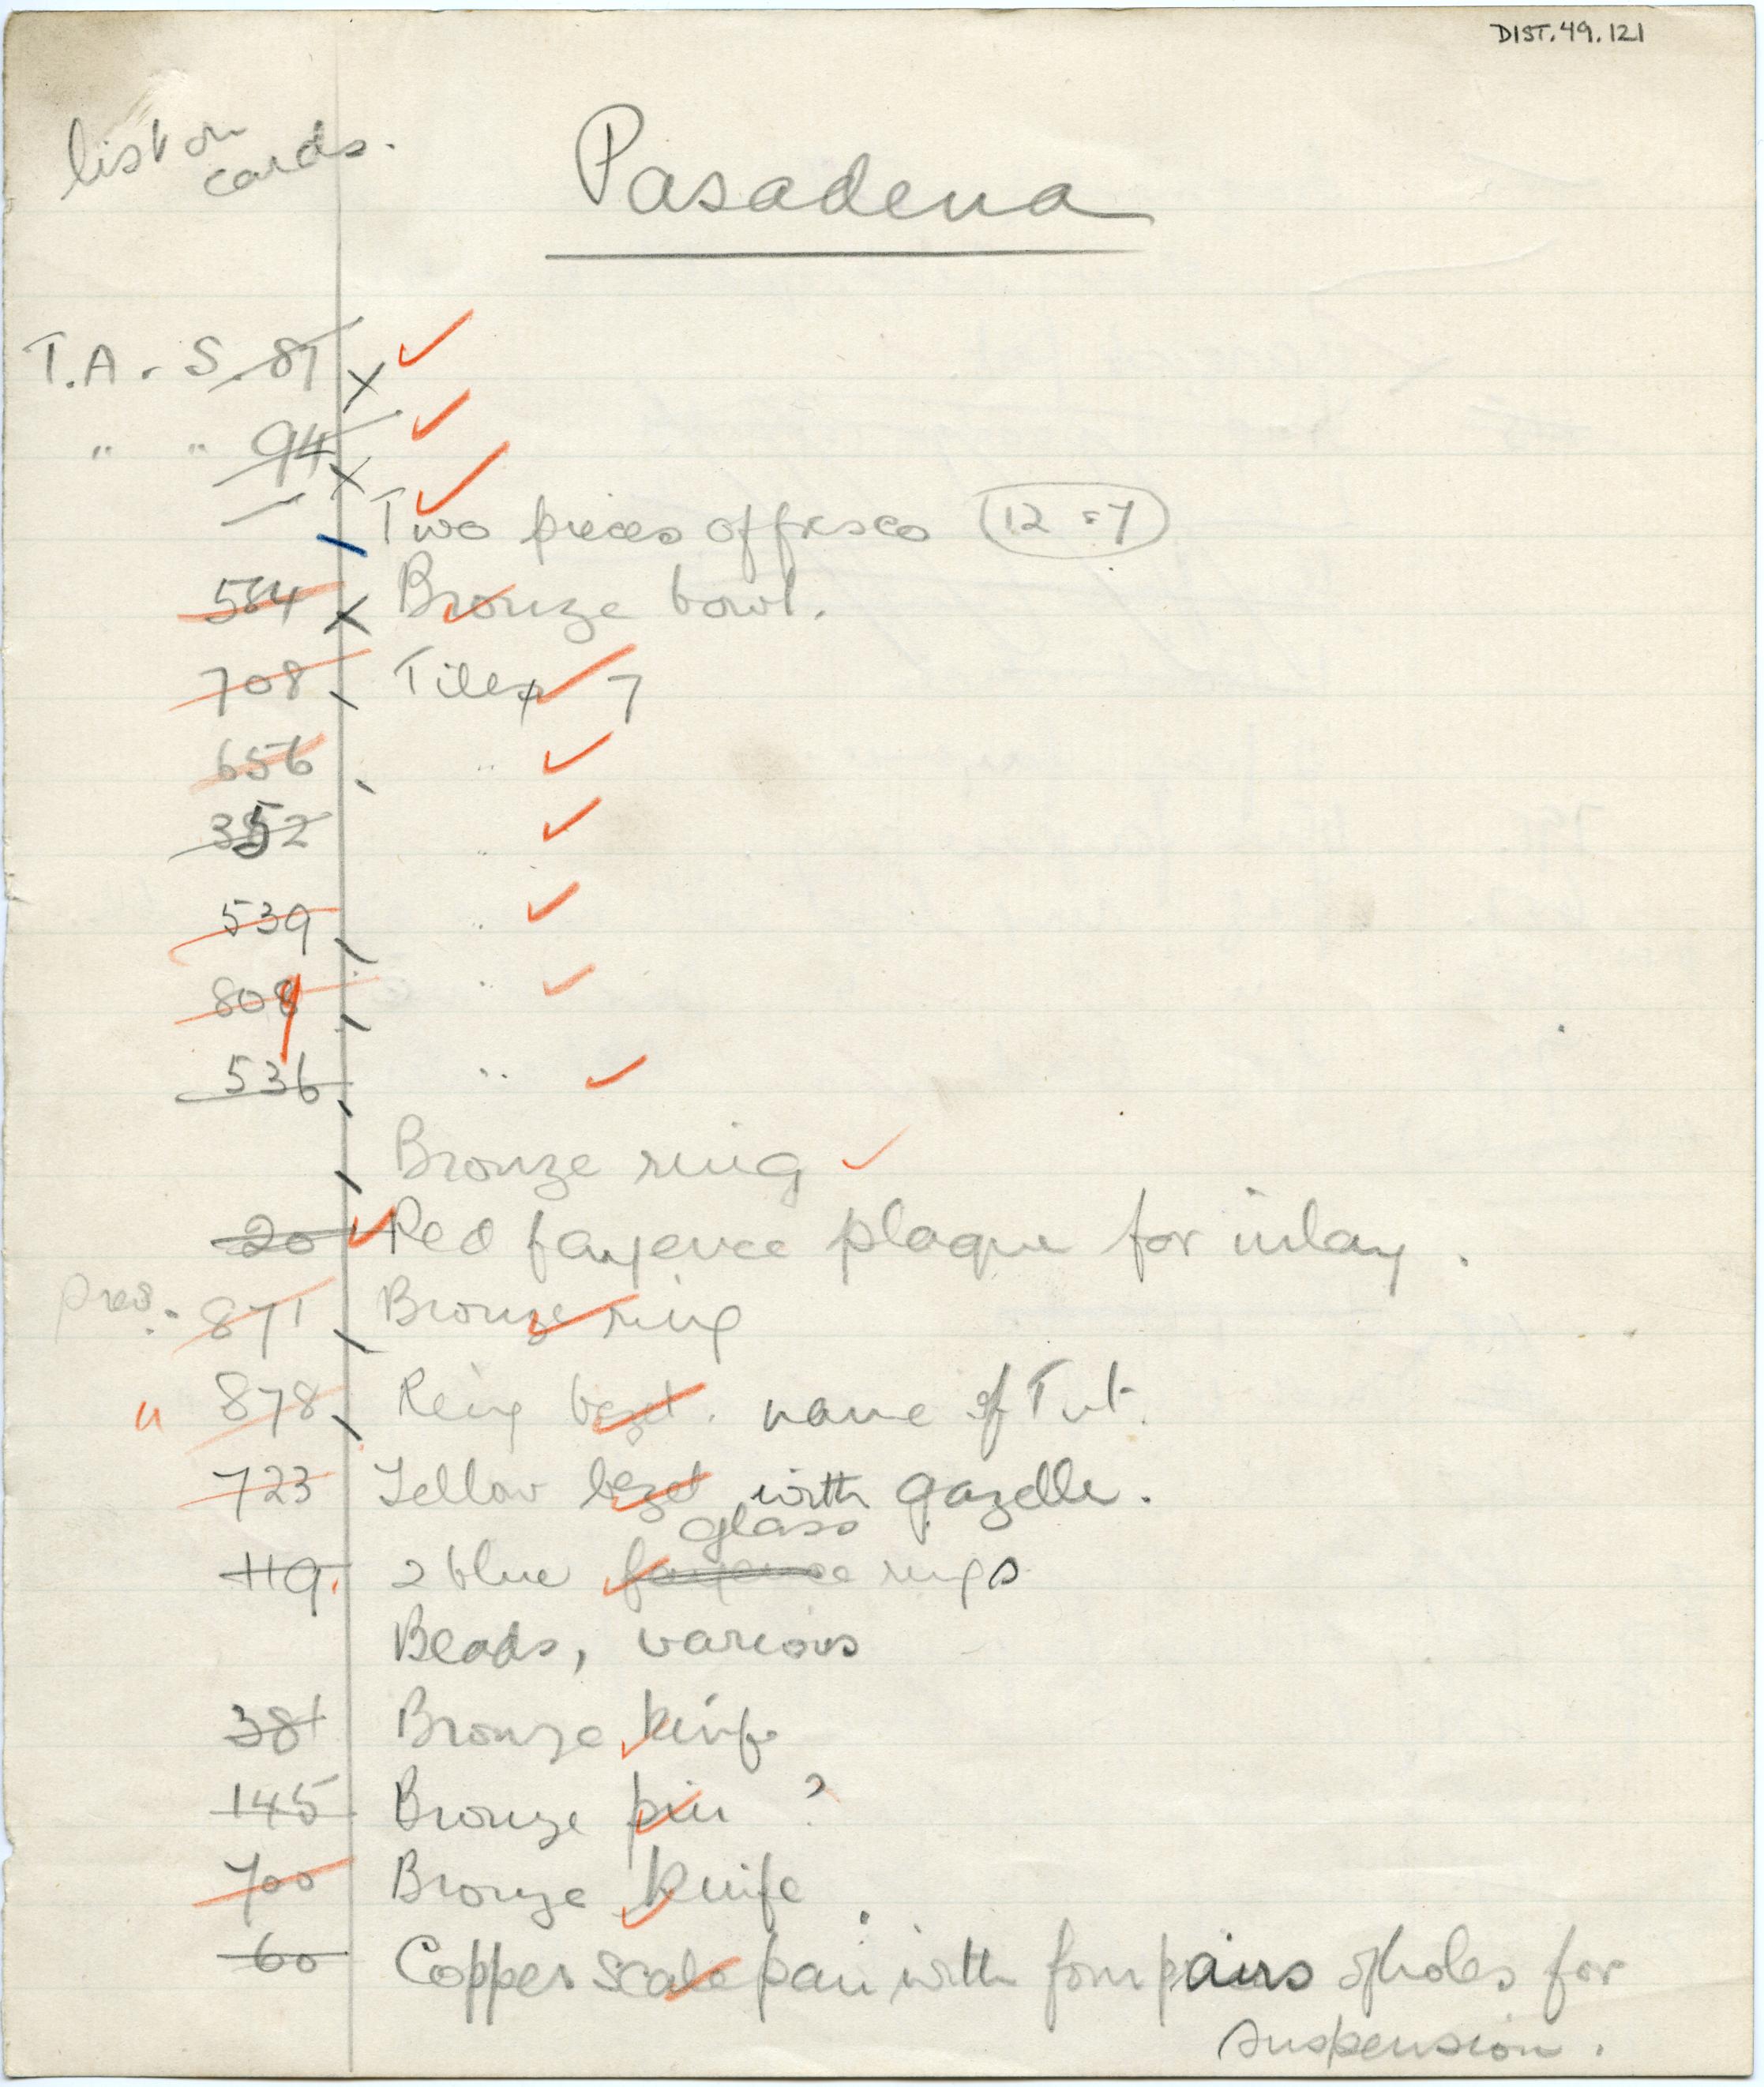 DIST.49.121
list on
cards.
Pasadena
T.A. S. 87
" " 94
— Two pieces of fresco
534 Bronze bowl.
708 Tiles 7
656 "
352 "
539 "
808 "
536 "
Bronze ring
20 Red fayence plaque for inlay.
pres. 871 Bronze ring
" 878 Ring bezel. name of Tut.
723 Yellow bezel with gazelle.
glass
119. 2 blue fayence rings
Beads, various
381 Bronze knife
145 Bronze pin ?
700 Bronze knife
60 Copper scale pan with four pairs of holes for
suspension.